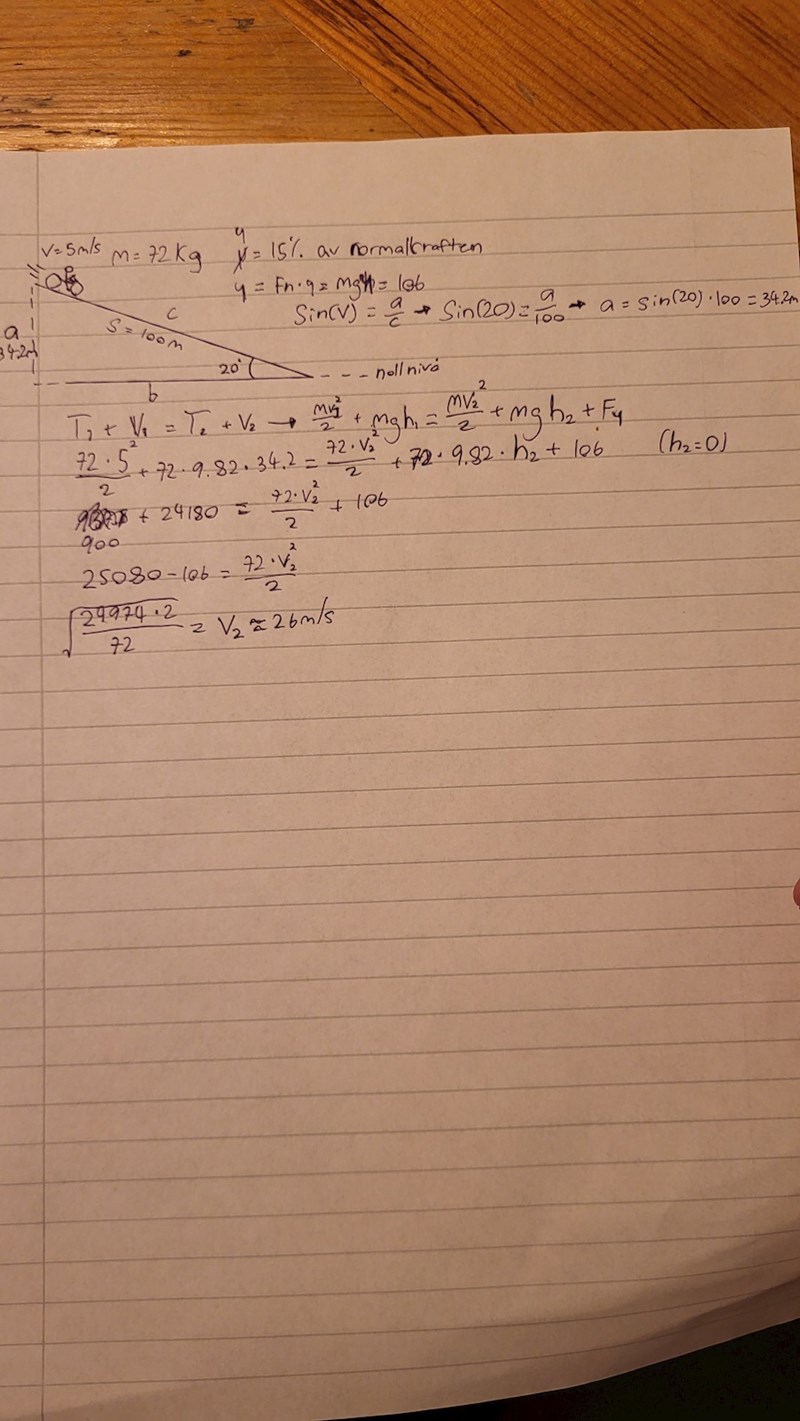 V=5m/s M=72Kg μ = 15% av normalkraften
μ = Fn·μ = Mgμ = 106
Sin(V) = a/c → Sin(20) = a/100 → a = sin(20)·100 = 34.2m
c
S=100m
a
34.2m
20° --- nollnivå
b
T₁ + V₁ = T₂ + V₂ → mv₁²/2 + mgh₁ = mv₂²/2 + mgh₂ + Fμ
72·5²/2 + 72·9.82·34.2 = 72·V₂²/2 + 72·9.82·h₂ + 106 (h₂=0)
900 + 24180 = 72·V₂²/2 + 106
25080-106 = 72·V₂²/2
√(24974·2/72) = V₂ ≈ 26m/s